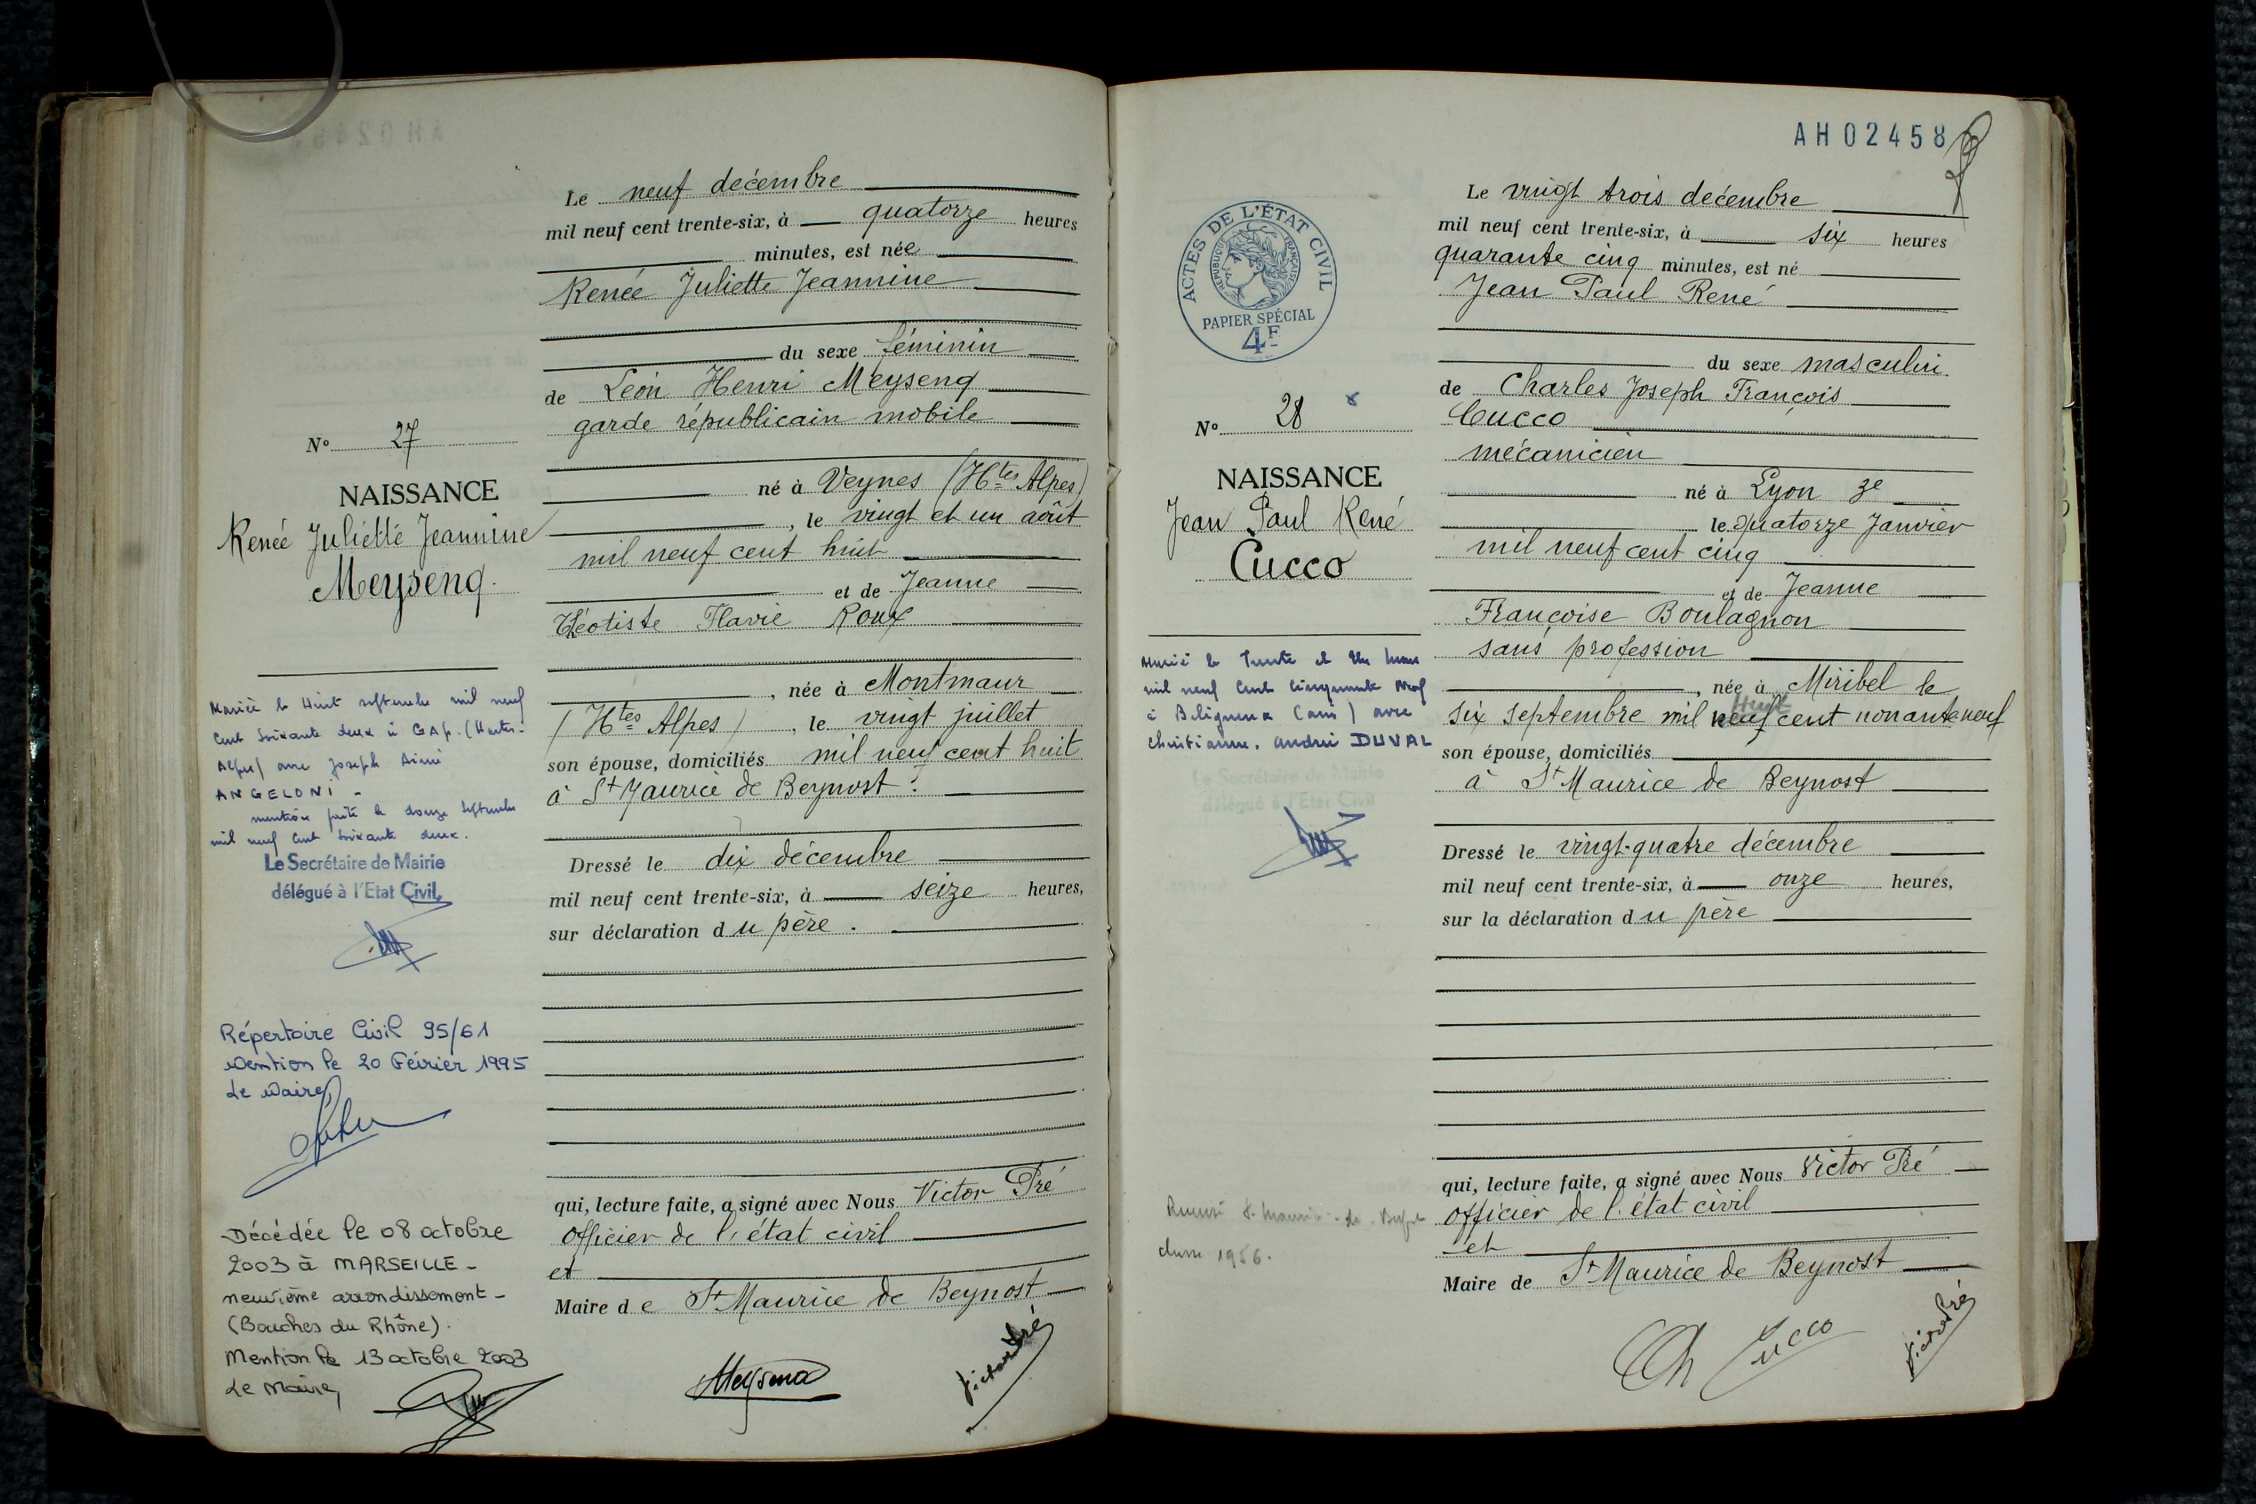 Le neuf décembre
mil neuf cent trente-six, à quatorze heures
minutes, est née
Renée Juliette Jeannine
du sexe féminin
de Léon Henri Meysenq
garde républicain mobile
né à Veynes (Htes Alpes)
, le vingt et un août
mil neuf cent huit
et de Jeanne
Théotiste Flavie Roux
, née à Montmaur
(Htes Alpes), le vingt juillet
son épouse, domiciliés mil neuf cent huit
à St Maurice de Beynost.
Dressé le dix décembre
mil neuf cent trente-six, à seize heures,
sur déclaration du père.
qui, lecture faite, a signé avec Nous Victor Pré
officier de l'état civil
et
Maire de St Maurice de Beynost
Meysenq
Victor Pré
No 27
NAISSANCE
Renée Juliette Jeannine
Meysenq.
Mariée le Huit septembre mil neuf
cent soixante deux à GAP. (Hautes-
Alpes) avec Joseph Aimé
ANGELONI -
mention faite le douze septembre
mil neuf cent soixante deux.
Le Secrétaire de Mairie
délégué à l'Etat Civil,
Répertoire Civil 95/61
Mention le 20 Février 1995
Le Maire,
Décédée le 08 octobre
2003 à MARSEILLE -
neuvième arrondissement -
(Bouches du Rhône).
Mention le 13 octobre 2003
Le Maire,
AH02458
ACTES DE L'ÉTAT CIVIL
RÉPUBLIQUE FRANÇAISE
PAPIER SPÉCIAL
4F
No 28
NAISSANCE
Jean Paul René
Cucco
Marié le Trente et Un
mil neuf cent cinquante neuf
à Béligneux (Ain) avec
Christianne. Andrée DUVAL
Le Secrétaire de Mairie
délégué à l'Etat Civil
St Maurice de
classe 1956.
Le vingt trois décembre
mil neuf cent trente-six, à six heures
quarante cinq minutes, est né
Jean Paul René
du sexe masculin
de Charles Joseph François
Cucco
mécanicien
né à Lyon 3e
le quatorze Janvier
mil neuf cent cinq
et de Jeanne
Françoise Boulagnon
sans profession
, née à Miribel le
huit
six septembre mil neuf cent nonante neuf
son épouse, domiciliés
à St Maurice de Beynost
Dressé le vingt-quatre décembre
mil neuf cent trente-six, à onze heures,
sur la déclaration du père
qui, lecture faite, a signé avec Nous Victor Pré
officier de l'état civil
et
Maire de St Maurice de Beynost
Ch Cucco
Victor Pré